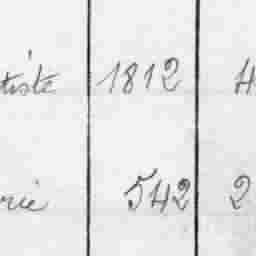 tiste 1812 4
rie 542 2